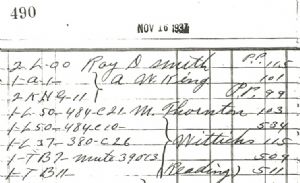 490
NOV 16 1937
P.P.
2-L-00 Roy D Smith 115
1-a-1- A W King 101
2 K H G-11 P.P. 99
1-L-50-484-C21 M. Thornton 103
1-L50-484-C10- 534
1-L 37-380-C26 Wittichs 115
1-TB2-mute 390C3 509
1-TB11 (Reading) 511